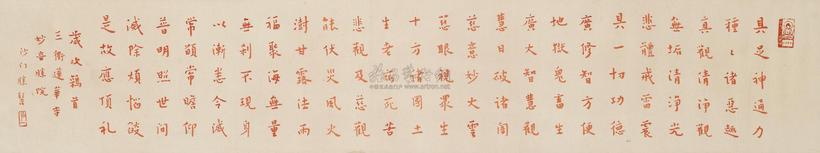 具足神通力
種々諸惡趣
真觀清淨觀
無垢清淨光
悲體戒雷震
具一切功德
廣修智方便
地獄鬼畜生
廣大智慧觀
慧日破諸闇
慈意妙大雲
慈眼視眾生
十方諸國土
生老病死苦
悲觀及慈觀
能伏災風火
澍甘露法雨
福聚海無量
無剎不現身
以漸悉令滅
常願常瞻仰
普明照世間
滅除煩惱燄
是故應頂礼
歲次鶉首
三衢蓮華寺
妙音勝院
沙门勝髻